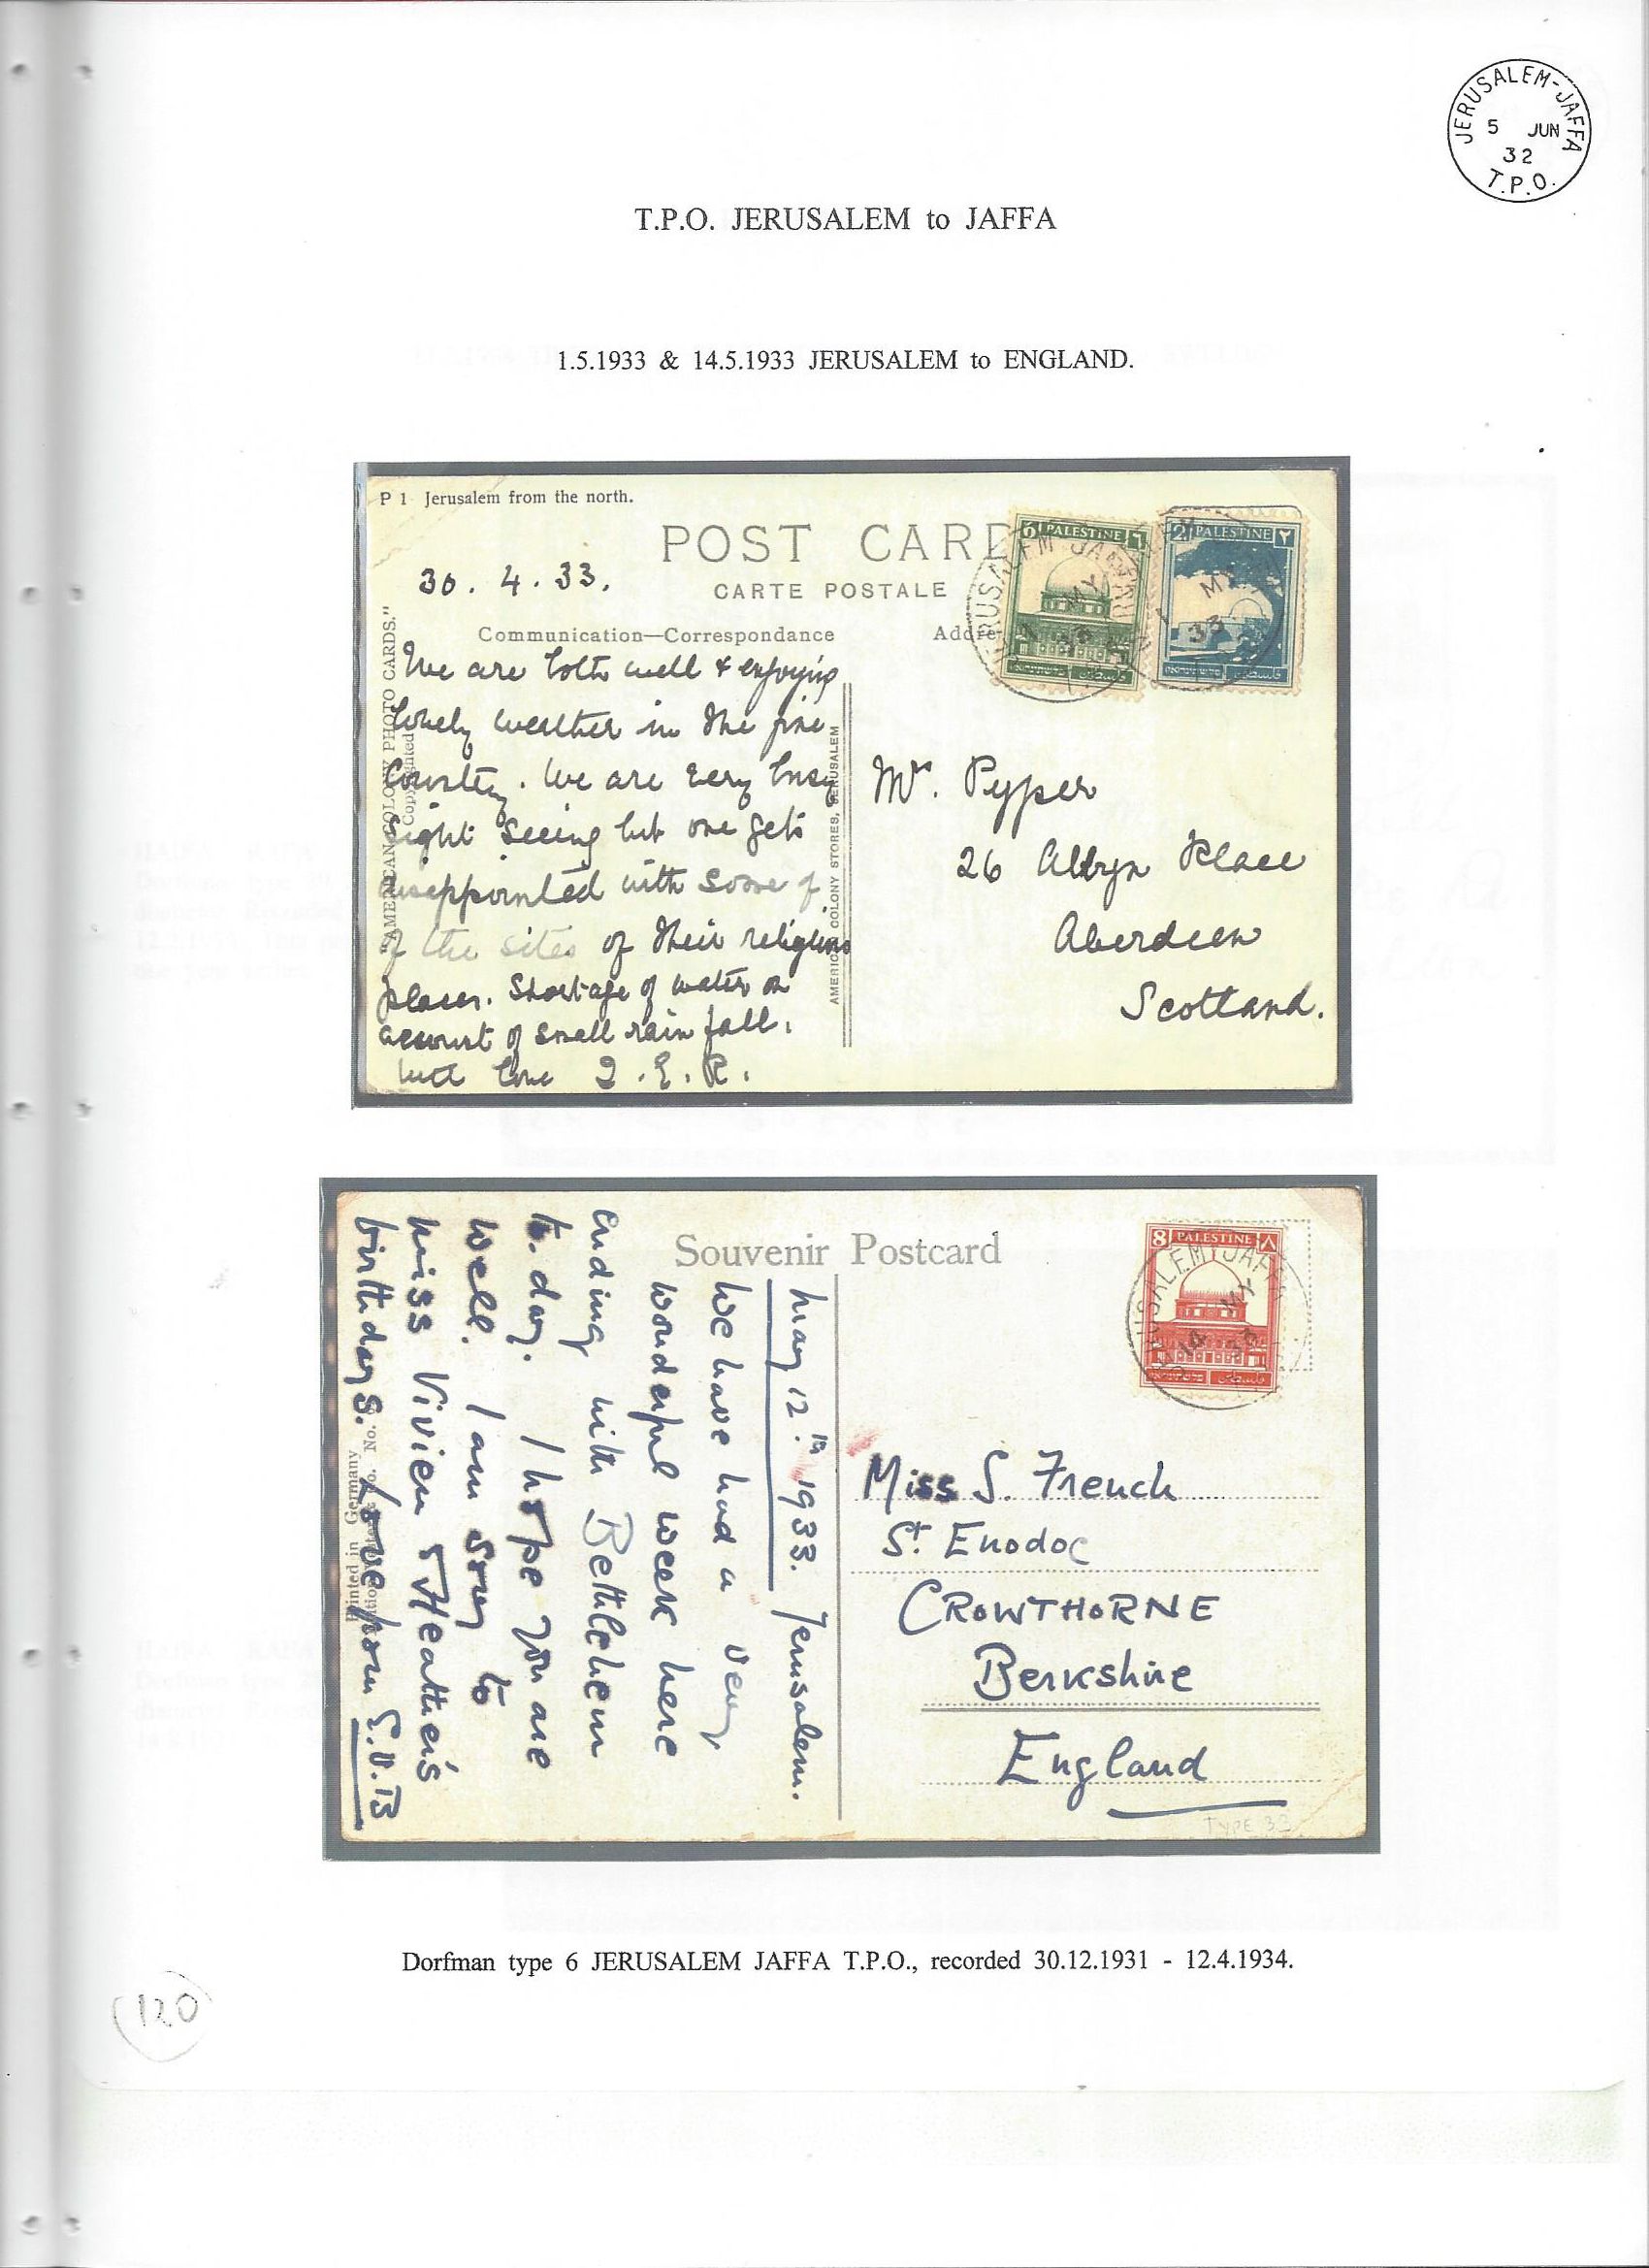 JERUSALEM-JAFFA
5 JUN
32
T.P.O.
T.P.O. JERUSALEM to JAFFA
1.5.1933 & 14.5.1933 JERUSALEM to ENGLAND.
P 1 Jerusalem from the north.
POST CARD
CARTE POSTALE
30.4.33.
Communication—Correspondance
Addre
"AMERICAN COLONY PHOTO CARDS."
Copyrighted
AMERICAN COLONY STORES, JERUSALEM
6 PALESTINE ٦
2 PALESTINE ٢
JERUSALEM JAFFA
1 MY
33
We are both well & enjoying
lovely weather in the fine
country. We are very busy
sight seeing but one gets
disappointed with some of
of the sites of their religious
places. Shortage of water on
account of small rain fall.
with love J.E.R.
Mr. Pyper
26 Albyn Place
Aberdeen
Scotland.
Souvenir Postcard
8 PALESTINE ٨
JERUSALEM JAFFA
14 MY
33
May 12th 1933. Jerusalem.
We have had a very
wonderful week here
ending with Bethlehem
to-day. I hope you are
well. I am sorry to
miss Vivien & Heather's
birthdays. Love from
Printed in Germany
Miss S. French
St. Enodoc
CROWTHORNE
Berkshire
England
TYPE 3
Dorfman type 6 JERUSALEM JAFFA T.P.O., recorded 30.12.1931 - 12.4.1934.
120